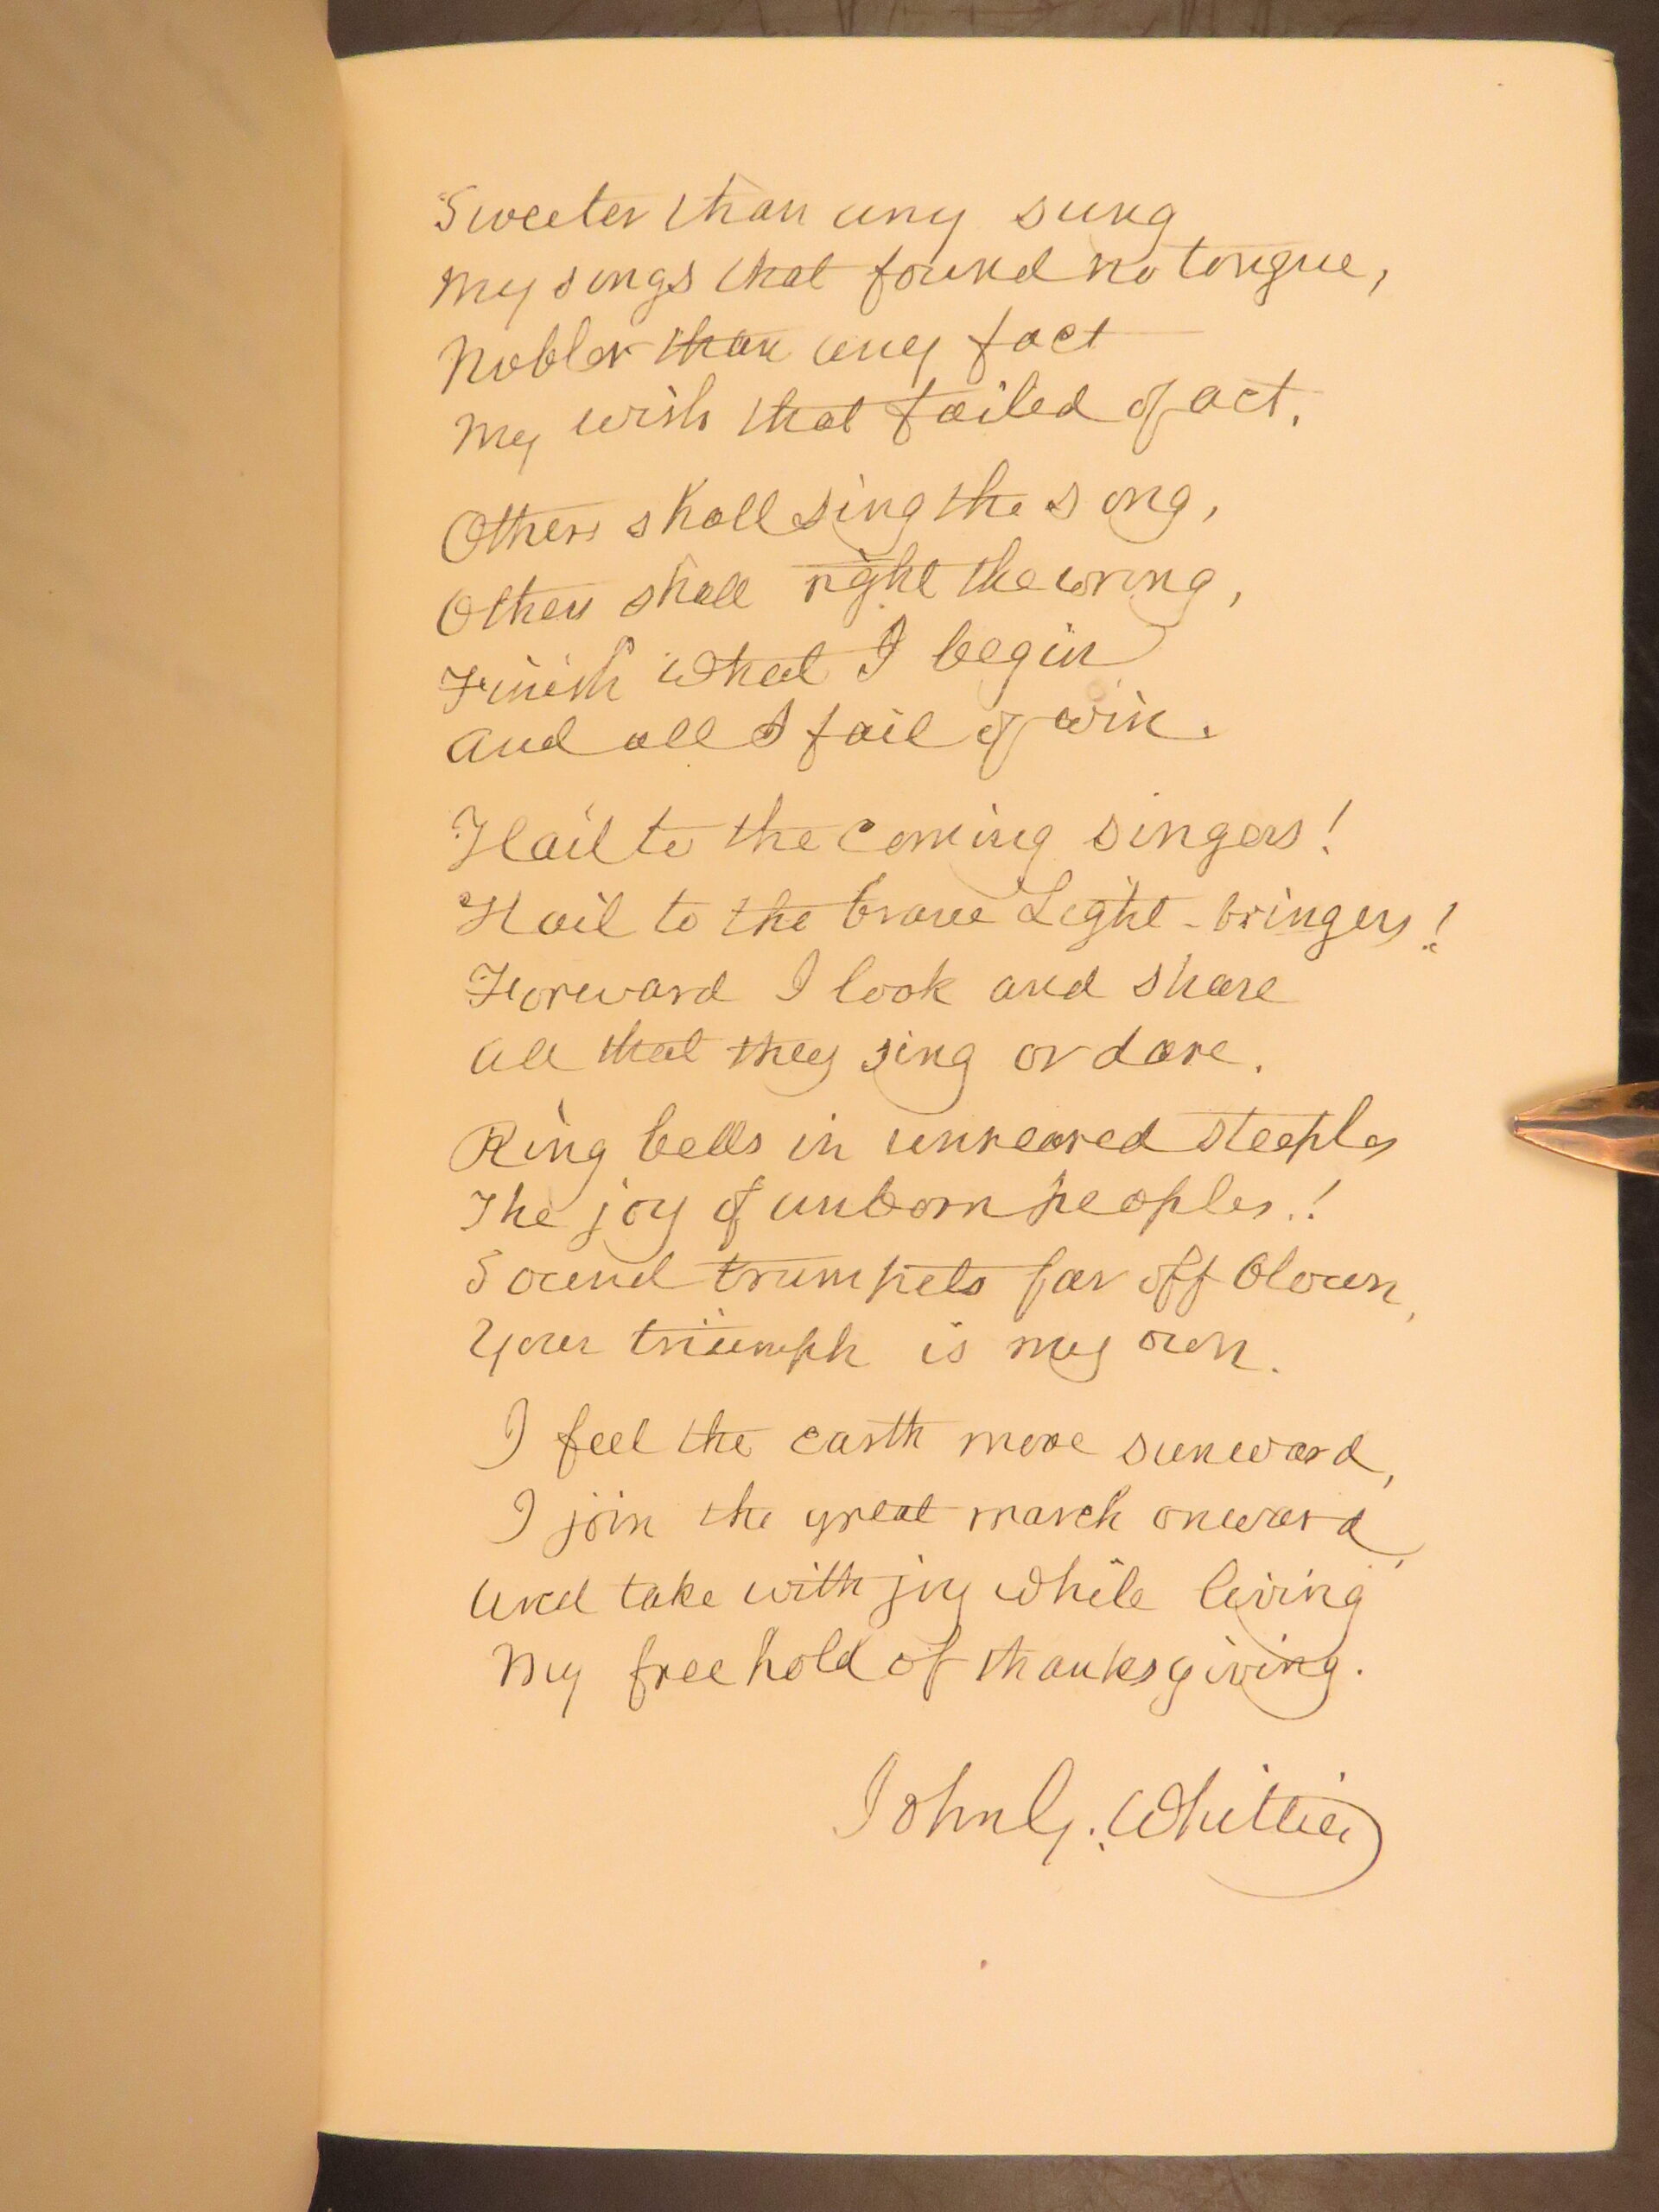 Sweeter than any sung
My songs that found no tongue,
Nobler than any fact
My wish that failed of act.
Others shall sing the song,
Others shall right the wrong,
Finish what I begin
And all I fail of win.
Hail to the coming singers!
Hail to the brave Light-bringers!
Forward I look and share
All that they sing or dare.
Ring bells in unreared steeples
The joy of unborn peoples!
Sound trumpets far off blown,
Your triumph is my own.
I feel the earth move sunward,
I join the great march onward,
And take with joy while living
My freehold of thanksgiving.
John G. Whittier